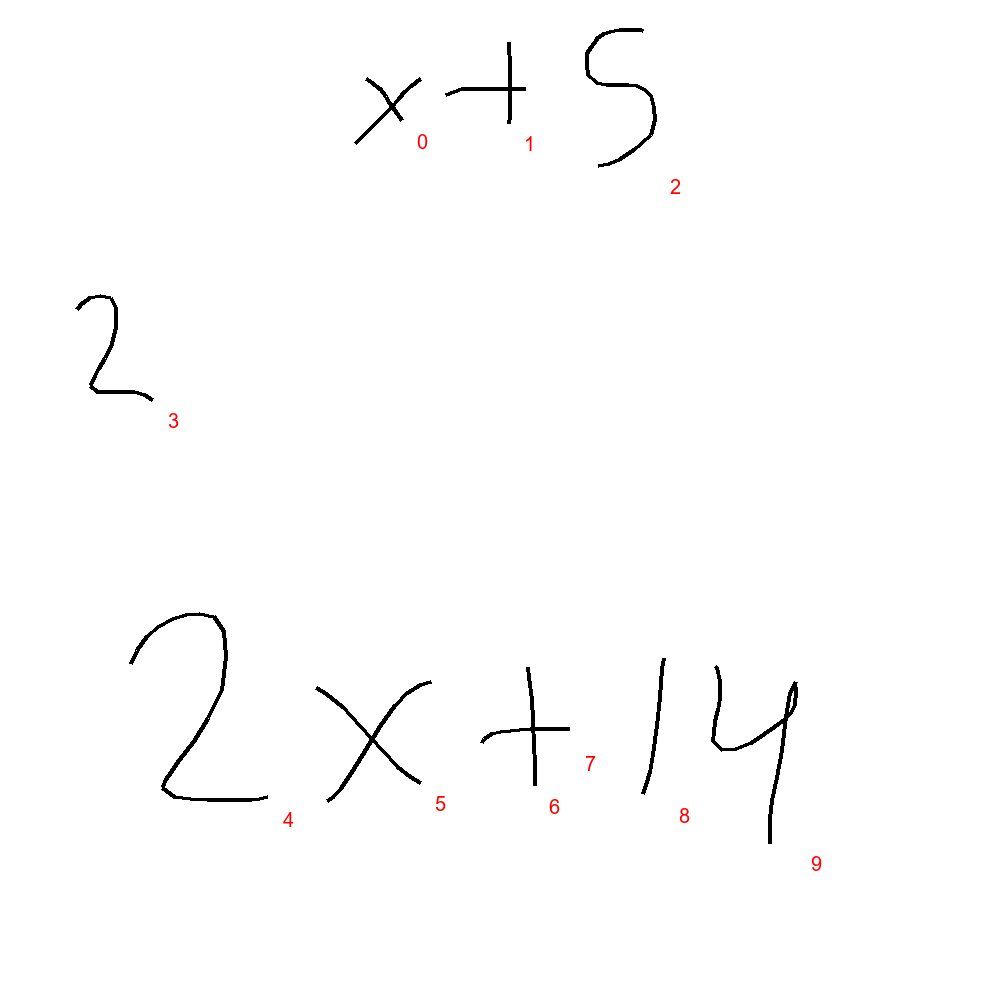 x + 5
0 1 2
2
3
2x + 14
4 5 6 7 8 9